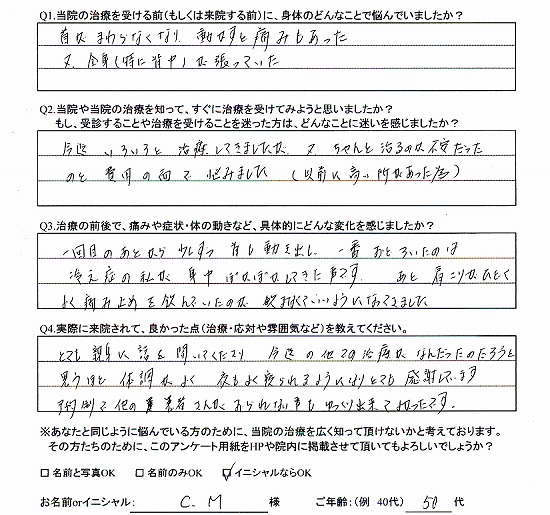 Q1.当院の治療を受ける前(もしくは来院する前)に、身体のどんなことで悩んでいましたか?
首がまわらなくなり 動かすと痛みもあった
又、全身(特に背中)が張っていた
Q2.当院や当院の治療を知って、すぐに治療を受けてみようと思いましたか?
もし、受診することや治療を受けることを迷った方は、どんなことに迷いを感じましたか?
今迄 いろいろと 治療してきましたが、又 ちゃんと治るのか不安だった
のと 費用の面で 悩みました (以前に高い所があった為)
Q3.治療の前後で、痛みや症状・体の動きなど、具体的にどんな変化を感じましたか?
一回目のあとから 少しずつ 首も動き出し 一番 おどろいたのは
冷え症の私が 身中 ぽかぽかしてきた事です。 あと 肩こりがひどく
よく痛み止めを飲んでいたのが 飲まなくていいようになってきました
Q4.実際に来院されて、良かった点(治療・応対や雰囲気など)を教えてください。
とても 親身に 話を聞いてくださり 今迄の他での治療が なんだったのだろうと
思うほど 体調がよく 夜もよく寝られるようになりとても 感謝しています
予約制で他の患者さんが おられない事も ゆっくり出来てよかったです。
※あなたと同じように悩んでいる方のために、当院の治療を広く知って頂けないかと考えております。
その方たちのために、このアンケート用紙をHPや院内に掲載させて頂いてもよろしいでしょうか?
□ 名前と写真OK □ 名前のみOK ☑ イニシャルならOK
お名前orイニシャル: C.M 様 ご年齢:(例 40代) 50 代